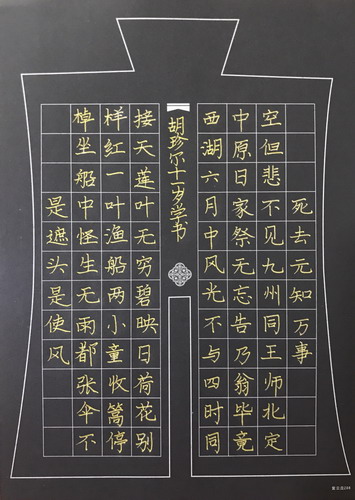 死去元知万事
空但悲不见九州同王师北定
中原日家祭无忘告乃翁毕竟
西湖六月中风光不与四时同
胡珍尔十一岁学书
接天莲叶无穷碧映日荷花别
样红一叶渔船两小童收篙停
棹坐船中怪生无雨都张伞不
是遮头是使风